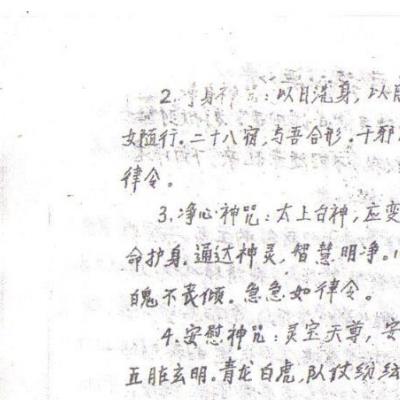 2. 净身神咒:以日洗身,以
女随行.二十八宿,与吾合形.千邪
律令。
3.净心神咒:太上台神,应变
命护身.通达神灵,智慧明净.
魄不丧倾.急急如律令。
4.安慰神咒:灵宝天尊,安
五脏玄明.青龙白虎,队仗纷纭